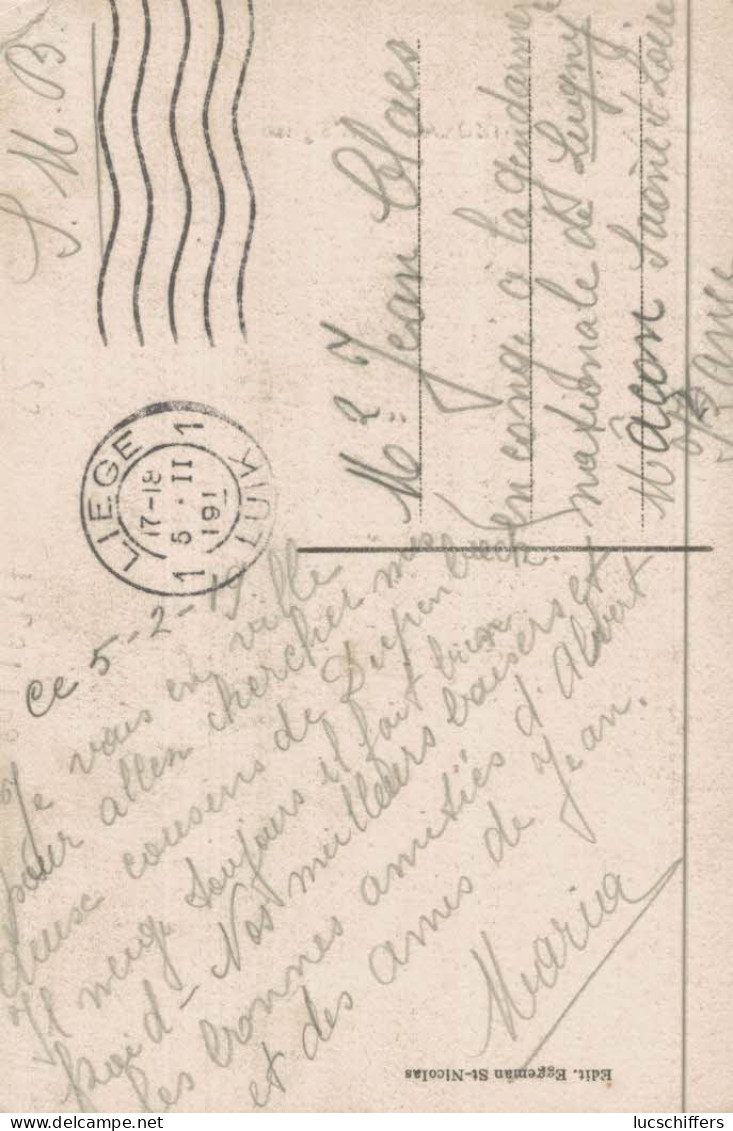 S. M. B.
LIEGE 1
17-18
5 · II
191
1 LUIK
Mr Jean Claes
en congé à la gendarmerie
nationale de Lugny
Mâcon Saône et Loire
France
Ce 5-2-19.
Je vais en ville
pour aller chercher mes
deux cousins de Diepenbeek.
Il neige toujours il fait bien
froid - Nos meilleurs baisers et
les bonnes amitiés d'Albert
et des amis de Jean.
Maria
Edit. Eggeman St-Nicolas
lucschiffers